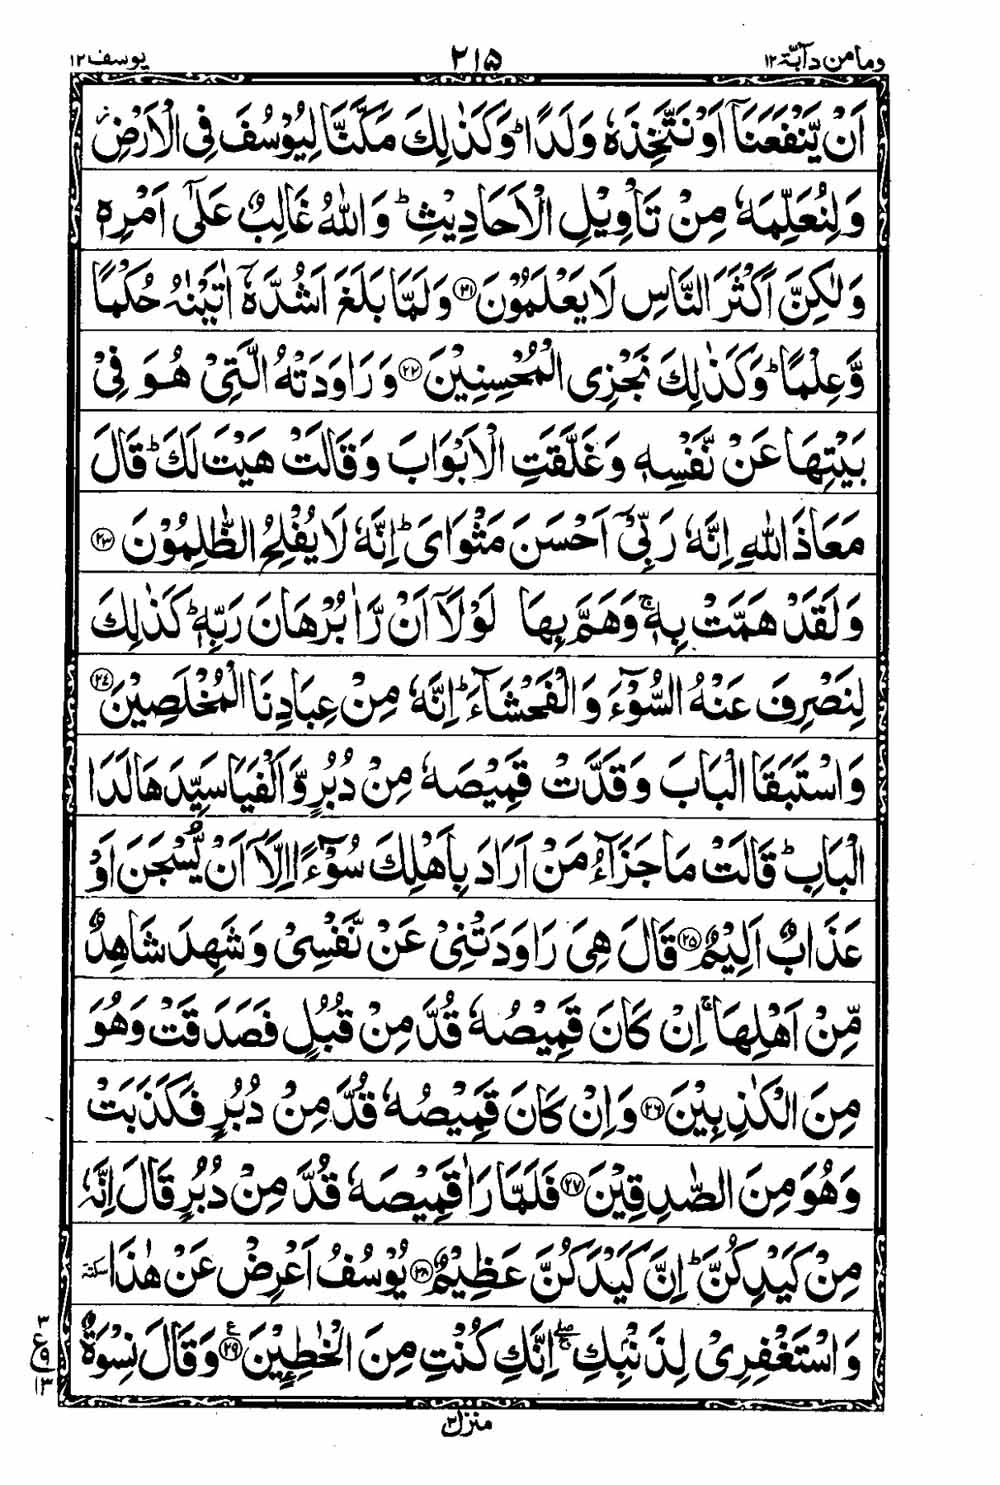 وما من دآبۃ ١٢ ٢١٥ یوسف ١٢
اَنْ یَّنْفَعَنَاۤ اَوْ نَتَّخِذَهٗ وَلَدًا ؕ وَكَذٰلِكَ مَكَّنَّا لِیُوْسُفَ فِی الْاَرْضِ ز
وَلِنُعَلِّمَهٗ مِنْ تَاْوِیْلِ الْاَحَادِیْثِ ؕ وَاللّٰهُ غَالِبٌ عَلٰۤی اَمْرِهٖ
وَلٰكِنَّ اَكْثَرَ النَّاسِ لَا یَعْلَمُوْنَ ﴿٢١﴾ وَلَمَّا بَلَغَ اَشُدَّهٗۤ اٰتَیْنٰهُ حُكْمًا
وَّعِلْمًا ؕ وَكَذٰلِكَ نَجْزِی الْمُحْسِنِیْنَ ﴿٢٢﴾ وَرَاوَدَتْهُ الَّتِیْ هُوَ فِیْ
بَیْتِهَا عَنْ نَّفْسِهٖ وَغَلَّقَتِ الْاَبْوَابَ وَقَالَتْ هَیْتَ لَكَ ؕ قَالَ
مَعَاذَ اللّٰهِ اِنَّهٗ رَبِّیْۤ اَحْسَنَ مَثْوَایَ ؕ اِنَّهٗ لَا یُفْلِحُ الظّٰلِمُوْنَ ﴿٢٣﴾
وَلَقَدْ هَمَّتْ بِهٖ ۚ وَهَمَّ بِهَا لَوْلَاۤ اَنْ رَّاٰ بُرْهَانَ رَبِّهٖ ؕ كَذٰلِكَ
لِنَصْرِفَ عَنْهُ السُّوْٓءَ وَالْفَحْشَآءَ ؕ اِنَّهٗ مِنْ عِبَادِنَا الْمُخْلَصِیْنَ ﴿٢٤﴾
وَاسْتَبَقَا الْبَابَ وَقَدَّتْ قَمِیْصَهٗ مِنْ دُبُرٍ وَّاَلْفَیَا سَیِّدَهَا لَدَا
الْبَابِ ؕ قَالَتْ مَا جَزَآءُ مَنْ اَرَادَ بِاَهْلِكَ سُوْٓءًا اِلَّاۤ اَنْ یُّسْجَنَ اَوْ
عَذَابٌ اَلِیْمٌ ﴿٢٥﴾ قَالَ هِیَ رَاوَدَتْنِیْ عَنْ نَّفْسِیْ وَشَهِدَ شَاهِدٌ
مِّنْ اَهْلِهَا ۚ اِنْ كَانَ قَمِیْصُهٗ قُدَّ مِنْ قُبُلٍ فَصَدَقَتْ وَهُوَ
مِنَ الْكٰذِبِیْنَ ﴿٢٦﴾ وَاِنْ كَانَ قَمِیْصُهٗ قُدَّ مِنْ دُبُرٍ فَكَذَبَتْ
وَهُوَ مِنَ الصّٰدِقِیْنَ ﴿٢٧﴾ فَلَمَّا رَاٰ قَمِیْصَهٗ قُدَّ مِنْ دُبُرٍ قَالَ اِنَّهٗ
مِنْ كَیْدِكُنَّ ؕ اِنَّ كَیْدَكُنَّ عَظِیْمٌ ﴿٢٨﴾ یُوْسُفُ اَعْرِضْ عَنْ هٰذَا سكتة
وَاسْتَغْفِرِیْ لِذَنْۢبِكِ ۖۚ اِنَّكِ كُنْتِ مِنَ الْخٰطِـِٕیْنَ ﴿٢٩﴾ ع وَقَالَ نِسْوَةٌ
٣
ع ٩
١٣
منزل ٣